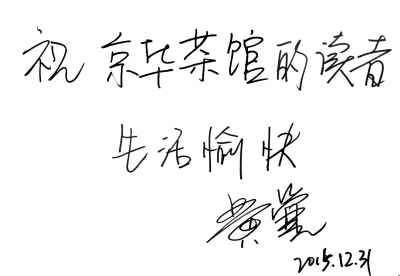 祝 京华茶馆的读者
生活愉快
2015.12.31